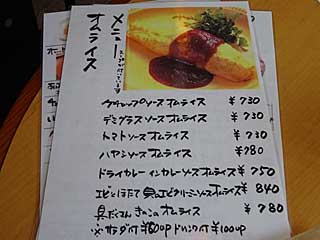 メニュー
スープが付いています
オムライス
ケチャップのソースオムライス ¥730
デミグラスソースオムライス ¥730
トマトソースオムライス ¥730
ハヤシソースオムライス ¥780
ドライカレーインカレーソースオムライス ¥750
エビとほたて クリーミーソースオムライス ¥840
具だくさんきのこのオムライス ¥780
※サラダ付 ドリンク付¥100up